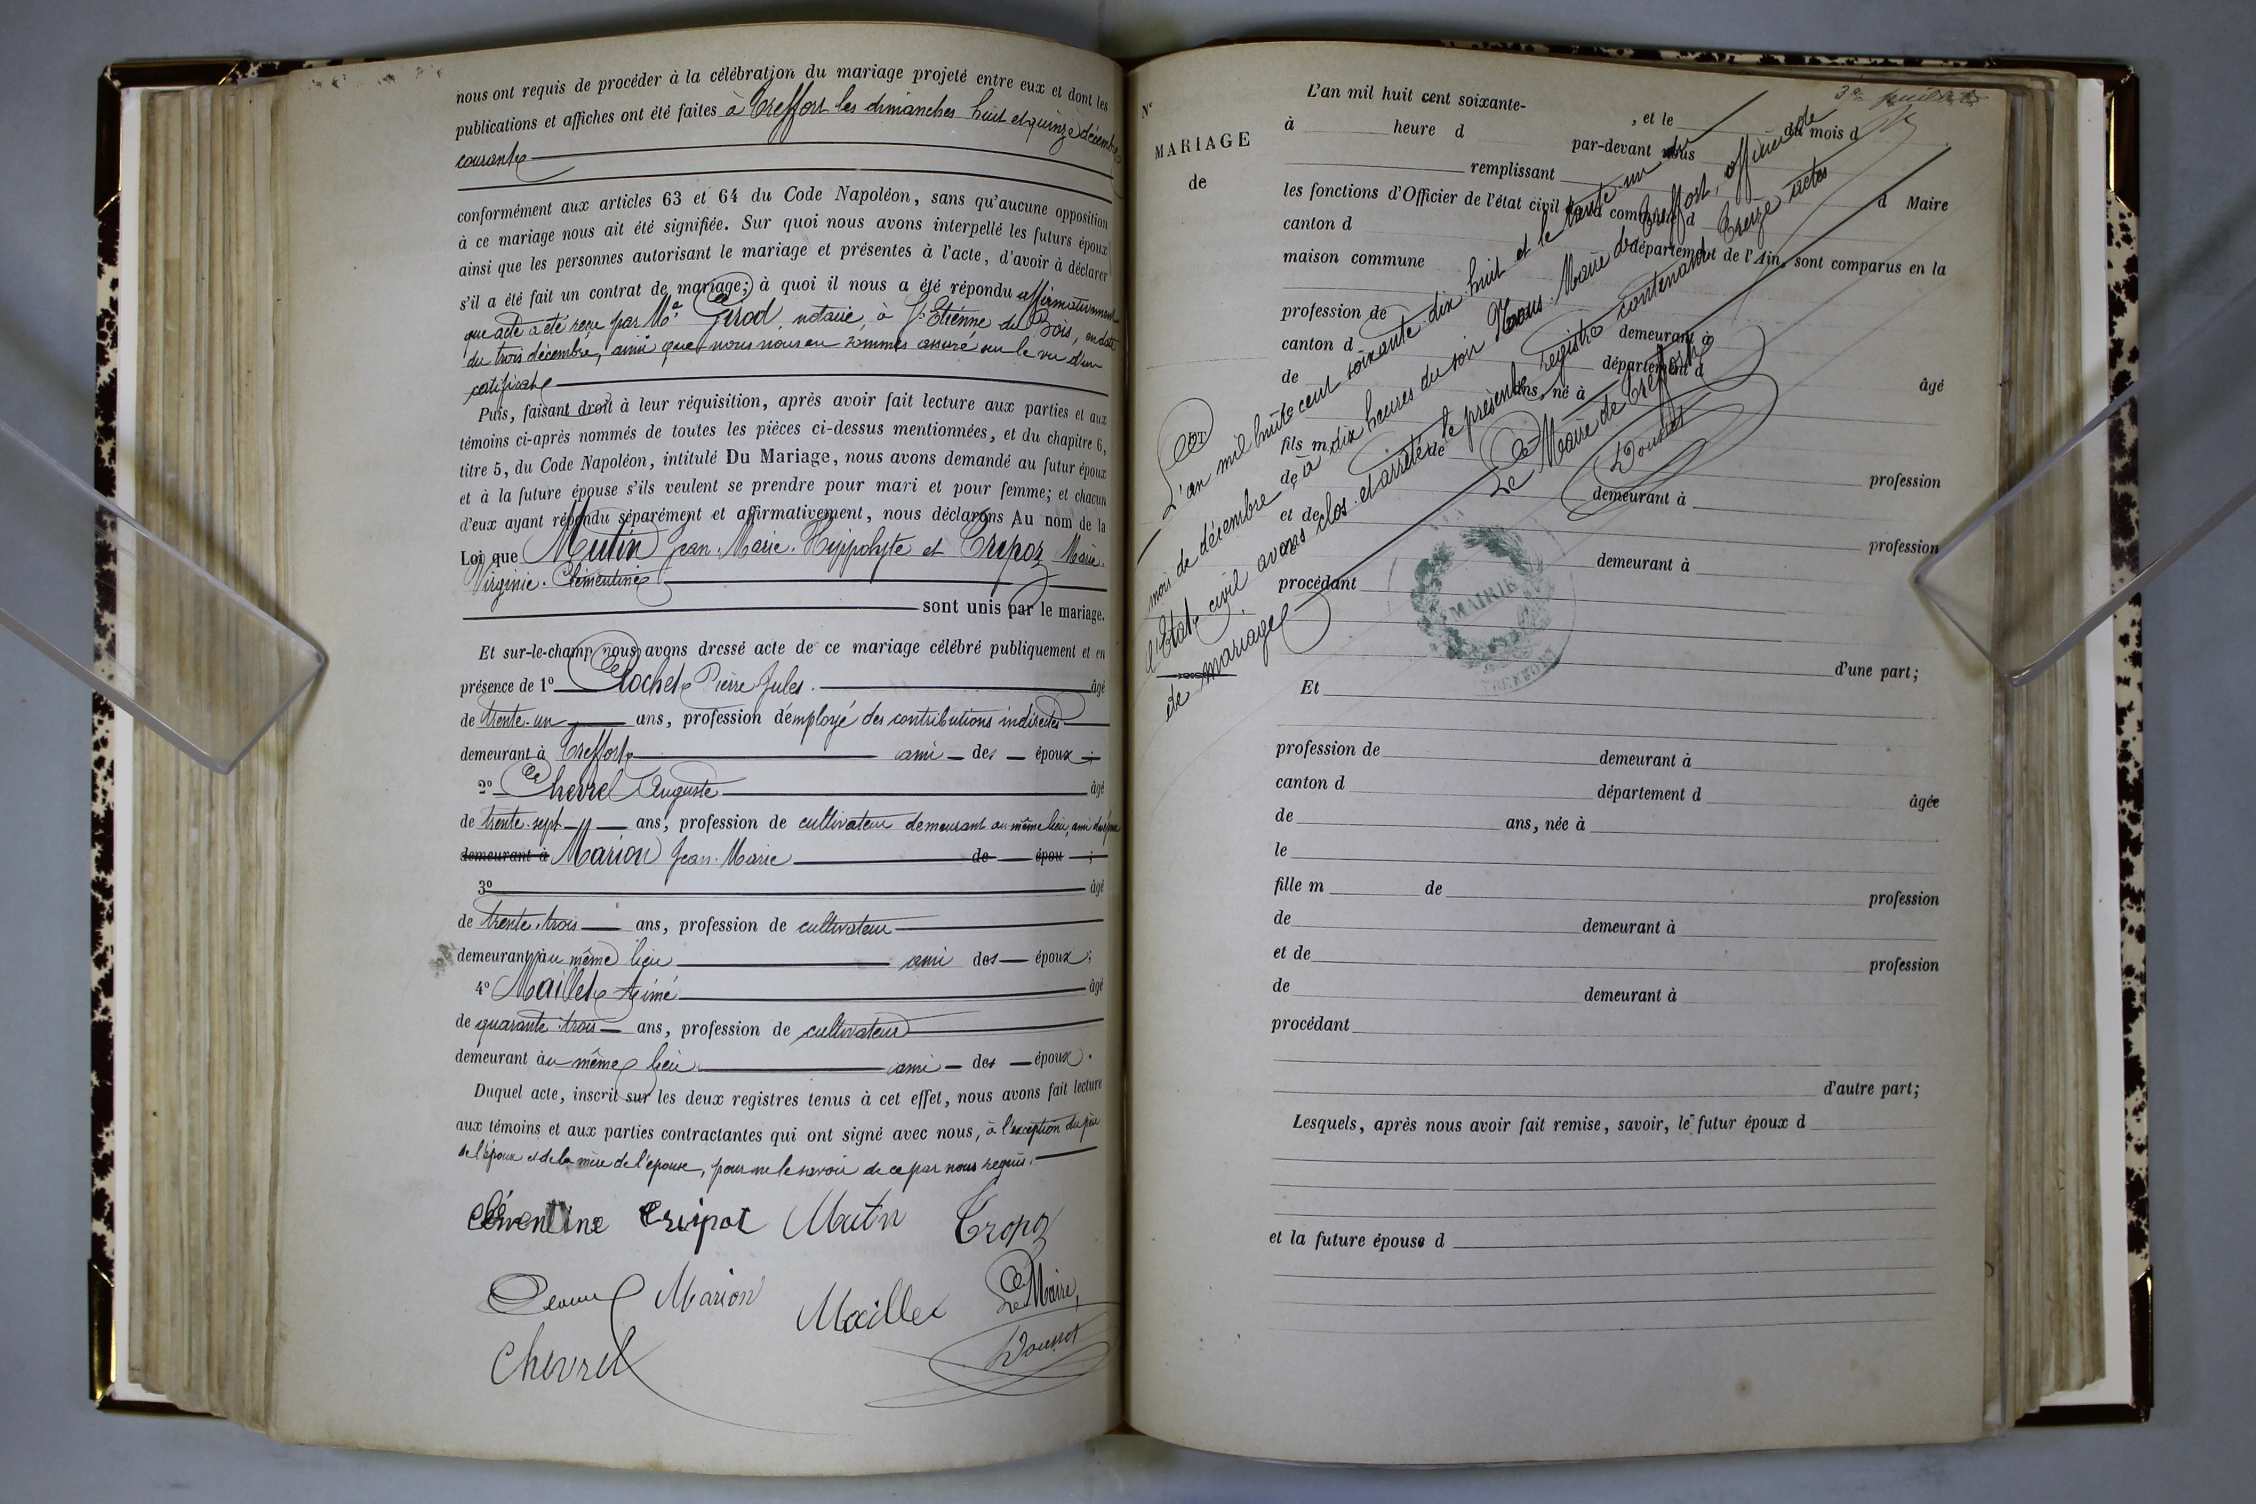 nous ont requis de procéder à la célébration du mariage projeté entre eux et dont les
publications et affiches ont été faites à Treffort les dimanches huit et quinze décembre
courant
conformément aux articles 63 et 64 du Code Napoléon, sans qu'aucune opposition
à ce mariage nous ait été signifiée. Sur quoi nous avons interpellé les futurs époux
ainsi que les personnes autorisant le mariage et présentes à l'acte, d'avoir à déclarer
s'il a été fait un contrat de mariage; à quoi il nous a été répondu affirmativement
que acte a été reçu par Me Girod, notaire, à St Etienne du Bois, en date
du trois décembre, ainsi que nous nous en sommes assuré sur le vu d'un
certificat
Puis, faisant droit à leur réquisition, après avoir fait lecture aux parties et aux
témoins ci-après nommés de toutes les pièces ci-dessus mentionnées, et du chapitre 6,
titre 5, du Code Napoléon, intitulé Du Mariage, nous avons demandé au futur époux
et à la future épouse s'ils veulent se prendre pour mari et pour femme; et chacun
d'eux ayant répondu séparément et affirmativement, nous déclarons Au nom de la
Loi que Mutin Jean-Marie-Hyppolyte et Trepoz Marie-
Virginie-Clémentine
sont unis par le mariage.
Et sur-le-champ nous avons dressé acte de ce mariage célébré publiquement et en
présence de 1° Clochet Pierre Jules âgé
de trente-un ans, profession d'employé des contributions indirectes
demeurant à Treffort ami des époux ;
2° Chevrel Auguste âgé
de trente-sept ans, profession de cultivateur demeurant au même lieu, ami des époux
demeurant à Marion Jean-Marie de épou ;
3° âgé
de trente-trois ans, profession de cultivateur
demeurant au même lieu ami des époux;
4° Maillet Aimé âgé
de quarante-trois ans, profession de cultivateur
demeurant au même lieu ami des époux.
Duquel acte, inscrit sur les deux registres tenus à cet effet, nous avons fait lecture
aux témoins et aux parties contractantes qui ont signé avec nous, à l'exception du père
de l'époux et de la mère de l'épouse, pour ne le savoir de ce par nous requis.
Clémentine Mutin Trepoz
Marion Maillet Le Maire,
Chevrel Doussot
N°
MARIAGE
de
L'an mil huit cent soixante-
, et le du mois d
à heure d par-devant nous
remplissant
les fonctions d'Officier de l'état civil de la commune d d Maire
canton d département de l'Ain, sont comparus en la
maison commune
profession de demeurant à
canton d département d
de ans, né à âgé
fils m de
de demeurant à profession
et de
de demeurant à profession
procédant
d'une part;
L'an mil huit cent soixante-dix-huit et le trente-un du
mois de décembre, à dix heures du soir Nous Maire de Treffort, officier de
l'Etat civil avons clos et arrêté le présent registre contenant treize actes
de mariage
Le Maire de Treffort
Doussot
MAIRIE
TREFFORT
Et
profession de demeurant à
canton d département d âgée
de ans, née à
le
fille m de profession
de demeurant à
et de profession
de demeurant à
procédant
d'autre part;
Lesquels, après nous avoir fait remise, savoir, le futur époux d
et la future épouse d